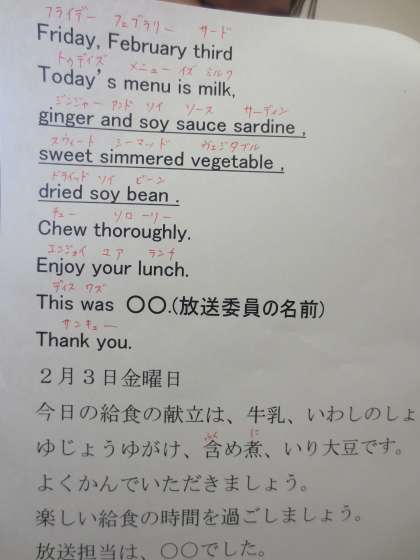 フライデー フェブラリー サード
Friday, February third
トゥデイズ メニュー イズ ミルク
Today's menu is milk,
ジンジャー アンド ソイ ソース サーディン
ginger and soy sauce sardine ,
スウィート シーマッド ヴェジタブル
sweet simmered vegetable ,
ドライッド ソイ ビーン
dried soy bean .
チュー ソローリー
Chew thoroughly.
エンジョイ ユア ランチ
Enjoy your lunch.
ディス ワズ
This was 〇〇.(放送委員の名前)
サンキュー
Thank you.
２月３日金曜日
今日の給食の献立は、牛乳、いわしのしょ
ふく に
ゆじょうゆがけ、含め煮、いり大豆です。
よくかんでいただきましょう。
楽しい給食の時間を過ごしましょう。
放送担当は、〇〇でした。